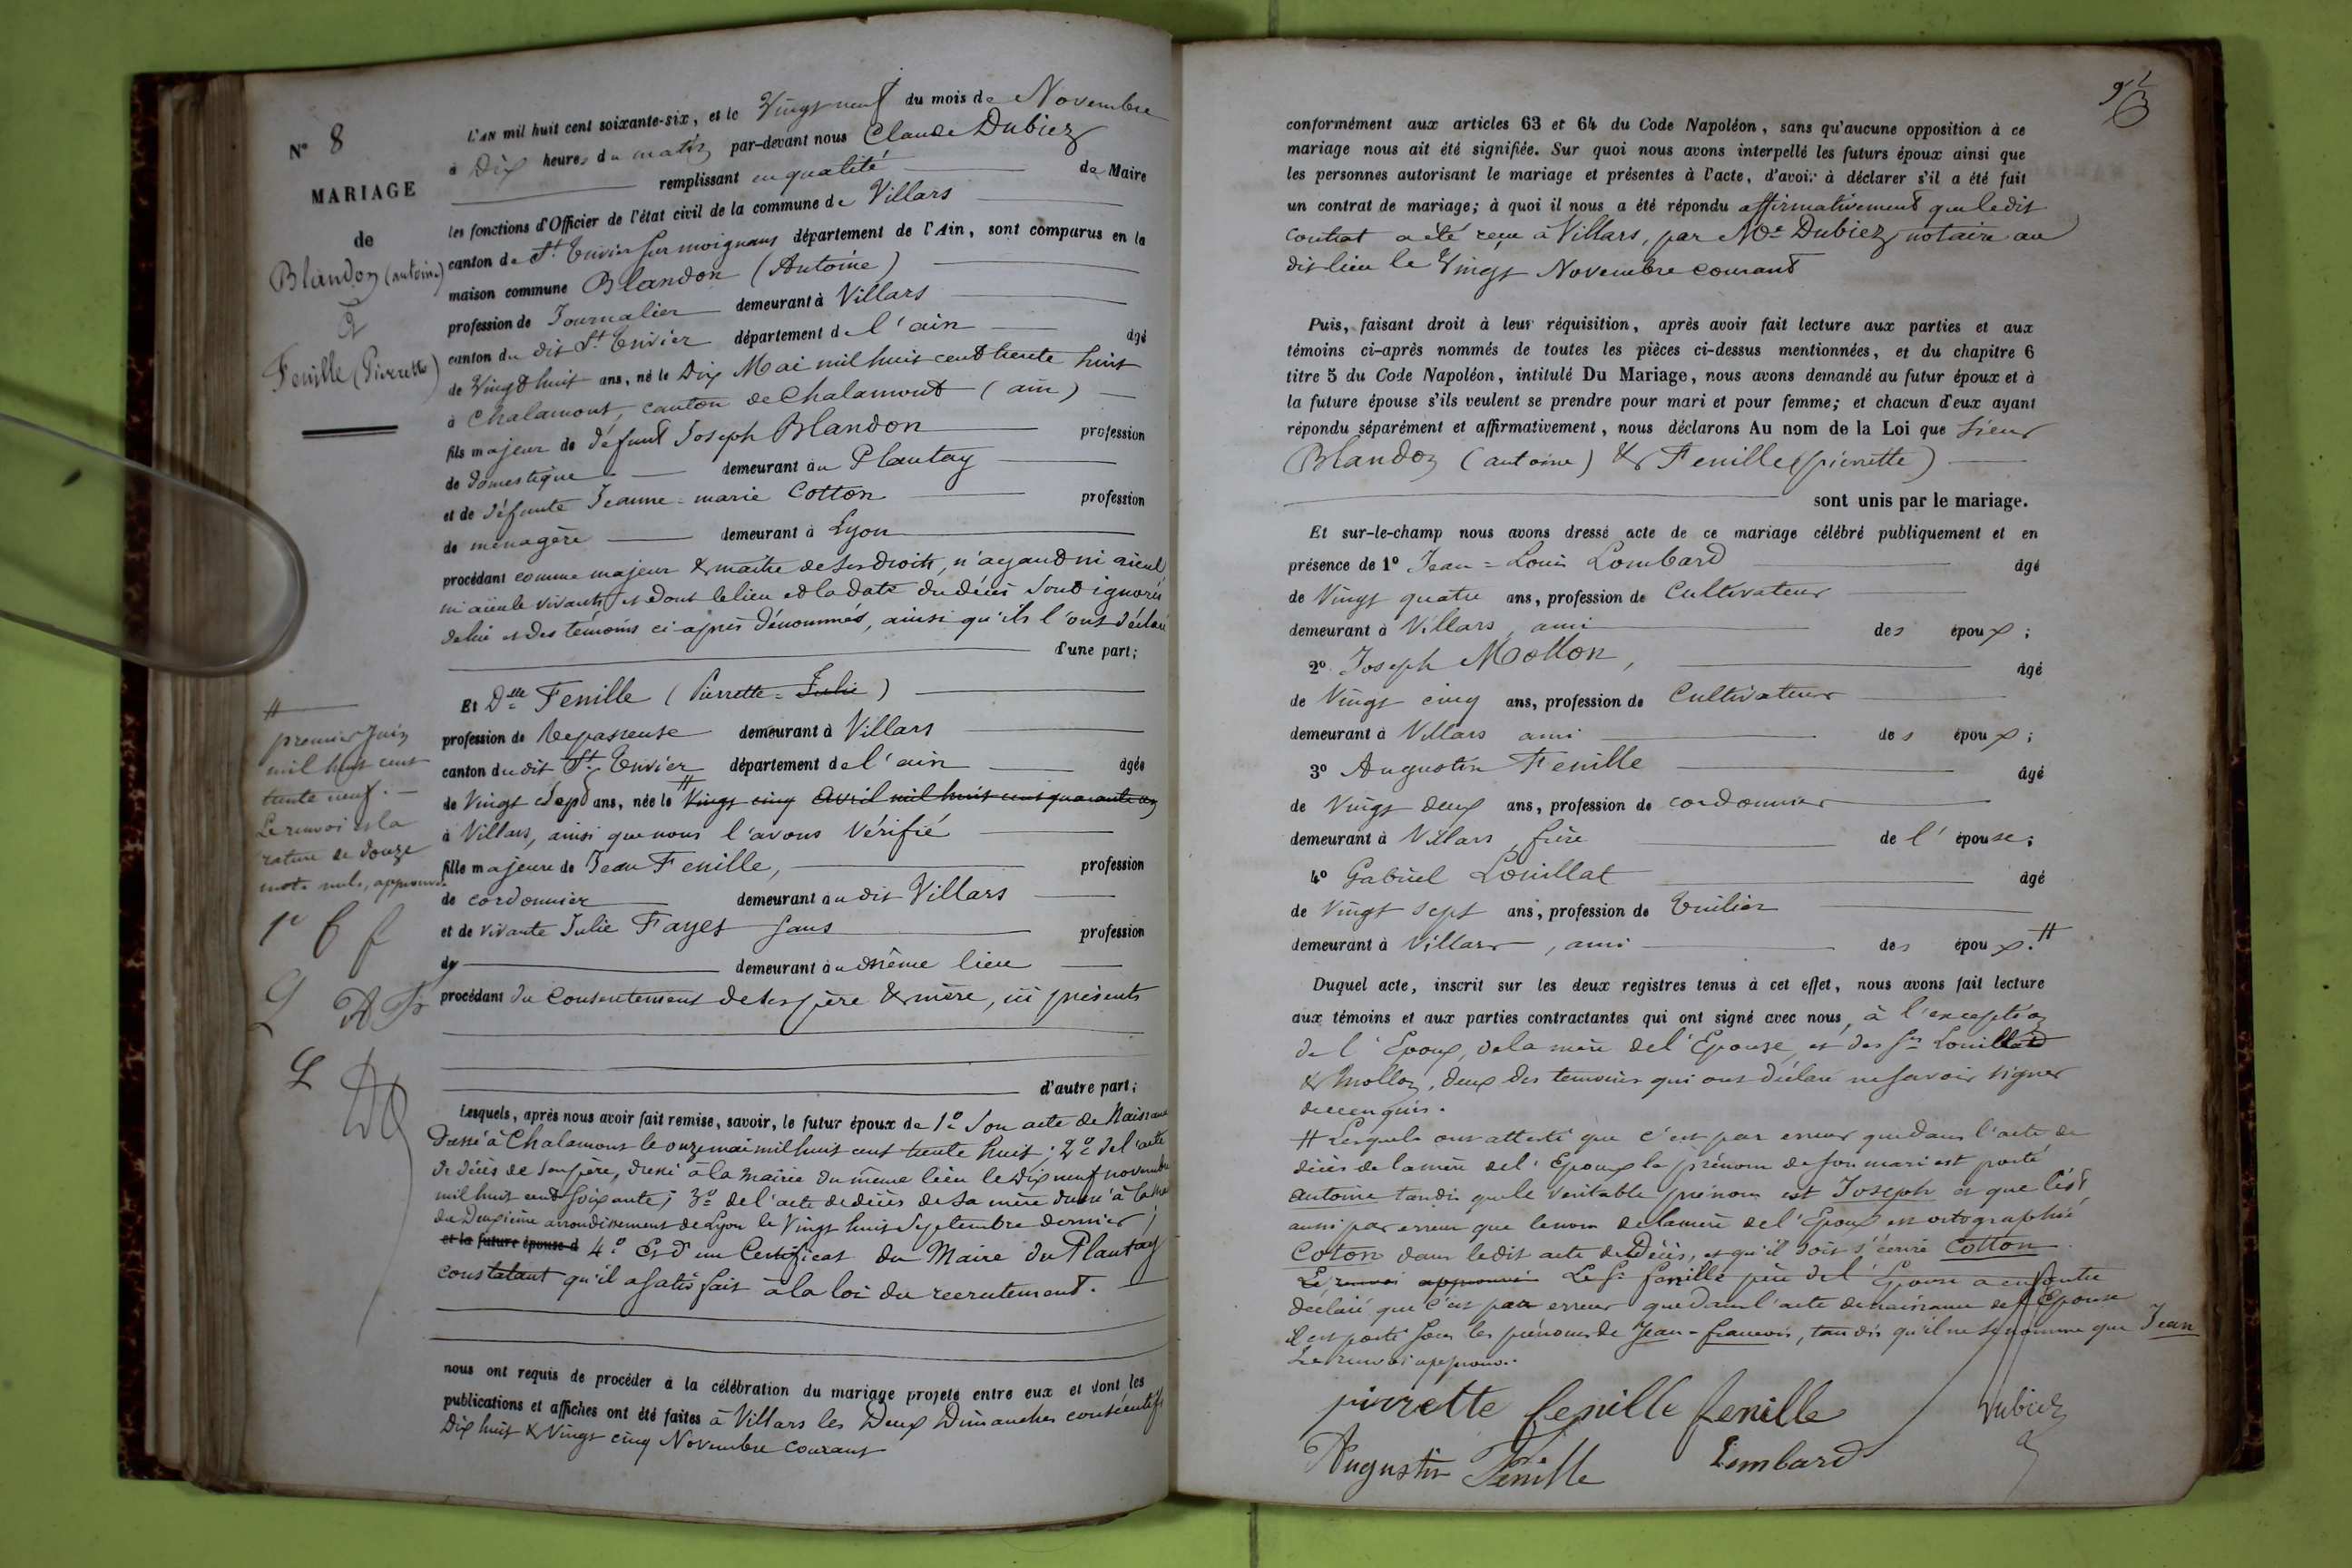 N° 8
MARIAGE
de
Blandon (Antoine)
&
Fenille (Pierrette)
L'AN mil huit cent soixante-six, et le Vingt neuf du mois de Novembre
à Dix heures du matin par-devant nous Claude Dubiez
remplissant en qualité de Maire
les fonctions d'Officier de l'état civil de la commune de Villars
canton de St. Trivier sur moignans département de l'Ain, sont comparus en la
maison commune Blandon (Antoine)
profession de Journalier demeurant à Villars
canton du dit St. Trivier département de l'ain âgé
de Vingt huit ans, né le Dix Mai mil huit cent trente huit
à Chalamont, canton de Chalamont (ain)
fils majeur de défunt Joseph Blandon profession
de Domestique demeurant au Plantay
et de défunte Jeanne-marie Cotton profession
de ménagère demeurant à Lyon
procédant comme majeur & maître de ses droits, n'ayant ni aïeul
ni aïeule vivants et dont le lieu et la date du décès sont ignorés
de lui et des témoins ci-après dénommés, ainsi qu'ils l'ont déclaré
d'une part;
Et Dlle Fenille (Pierrette-Julie)
profession de Repasseuse demeurant à Villars
canton du dit St. Trivier département de l'ain âgée
de Vingt sept ans, née le # Vingt cinq Avril mil huit cent quarante un
à Villars, ainsi que nous l'avons Vérifié
fille majeure de Jean Fenille, profession
de cordonnier demeurant au dit Villars
et de vivante Julie Fayet sans profession
de demeurant au même lieu
procédant du Consentement de ses père & mère, ici présents
d'autre part;
#
premier Juin
mil huit cent
trente neuf.
Le renvoi et la
rature de douze
mots nuls, approuvés
Lesquels, après nous avoir fait remise, savoir, le futur époux de 1° Son acte de Naissance
Dressé à Chalamont le onze mai mil huit cent trente huit; 2° de l'acte
de décès de son père, dressé à la mairie du même lieu le Dix neuf novembre
mil huit cent soixante; 3° de l'acte de décès de sa mère dressé à la
du Deuxième arrondissement de Lyon le Vingt huit Septembre dernier;
et la future épouse d 4° Et d'un Certificat du Maire du Plantay
constatant qu'il a satisfait à la loi du recrutement.
nous ont requis de procéder à la célébration du mariage projeté entre eux et dont les
publications et affiches ont été faites à Villars les Deux Dimanches consécutifs
Dix huit & Vingt cinq Novembre courant
conformément aux articles 63 et 64 du Code Napoléon, sans qu'aucune opposition à ce
mariage nous ait été signifiée. Sur quoi nous avons interpellé les futurs époux ainsi que
les personnes autorisant le mariage et présentes à l'acte, d'avoir à déclarer s'il a été fait
un contrat de mariage; à quoi il nous a été répondu affirmativement que ledit
contrat a été reçu à Villars, par Me Dubiez notaire au
dit lieu le Vingt Novembre courant
Puis, faisant droit à leur réquisition, après avoir fait lecture aux parties et aux
témoins ci-après nommés de toutes les pièces ci-dessus mentionnées, et du chapitre 6
titre 5 du Code Napoléon, intitulé Du Mariage, nous avons demandé au futur époux et à
la future épouse s'ils veulent se prendre pour mari et pour femme; et chacun d'eux ayant
répondu séparément et affirmativement, nous déclarons Au nom de la Loi que Sieur
Blandon (antoine) & Fenille (pierrette)
sont unis par le mariage.
Et sur-le-champ nous avons dressé acte de ce mariage célébré publiquement et en
présence de 1° Jean-Louis Lombard âgé
de Vingt quatre ans, profession de Cultivateur
demeurant à Villars, ami des époux;
2° Joseph Mollon, âgé
de Vingt cinq ans, profession de Cultivateur
demeurant à Villars ami des époux;
3° Augustin Fenille âgé
de Vingt deux ans, profession de cordonnier
demeurant à Villars, frère de l'épouse;
4° Gabriel Louillat âgé
de Vingt sept ans, profession de Tuilier
demeurant à Villars, ami des époux. #
Duquel acte, inscrit sur les deux registres tenus à cet effet, nous avons fait lecture
aux témoins et aux parties contractantes qui ont signé avec nous, à l'exception
de l'Epoux, de la mère de l'Epouse et des Srs Louillat
& Mollon, deux des témoins qui ont déclaré ne savoir signer
de ce enquis.
# Lesquels ont attesté que c'est par erreur que dans l'acte de
décès de la mère de l'Epoux le prénom de son mari est porté
antoine tandis que le véritable prénom est Joseph et que c'est
aussi par erreur que le nom de la mère de l'Epoux est ortographié
Coton dans ledit acte de Décès, et qu'il doit s'écrire Cotton
Le renvoi approuvé Le Sr fenille père de l'Epouse a en outre
déclaré que c'est par erreur que dans l'acte de naissance de l'Epouse
il est porté sous les prénoms de Jean-francois, tandis qu'il ne se nomme que Jean
Le renvoi approuvé.
pierrette fenille fenille Dubiez
Augustin Fenille Lombard